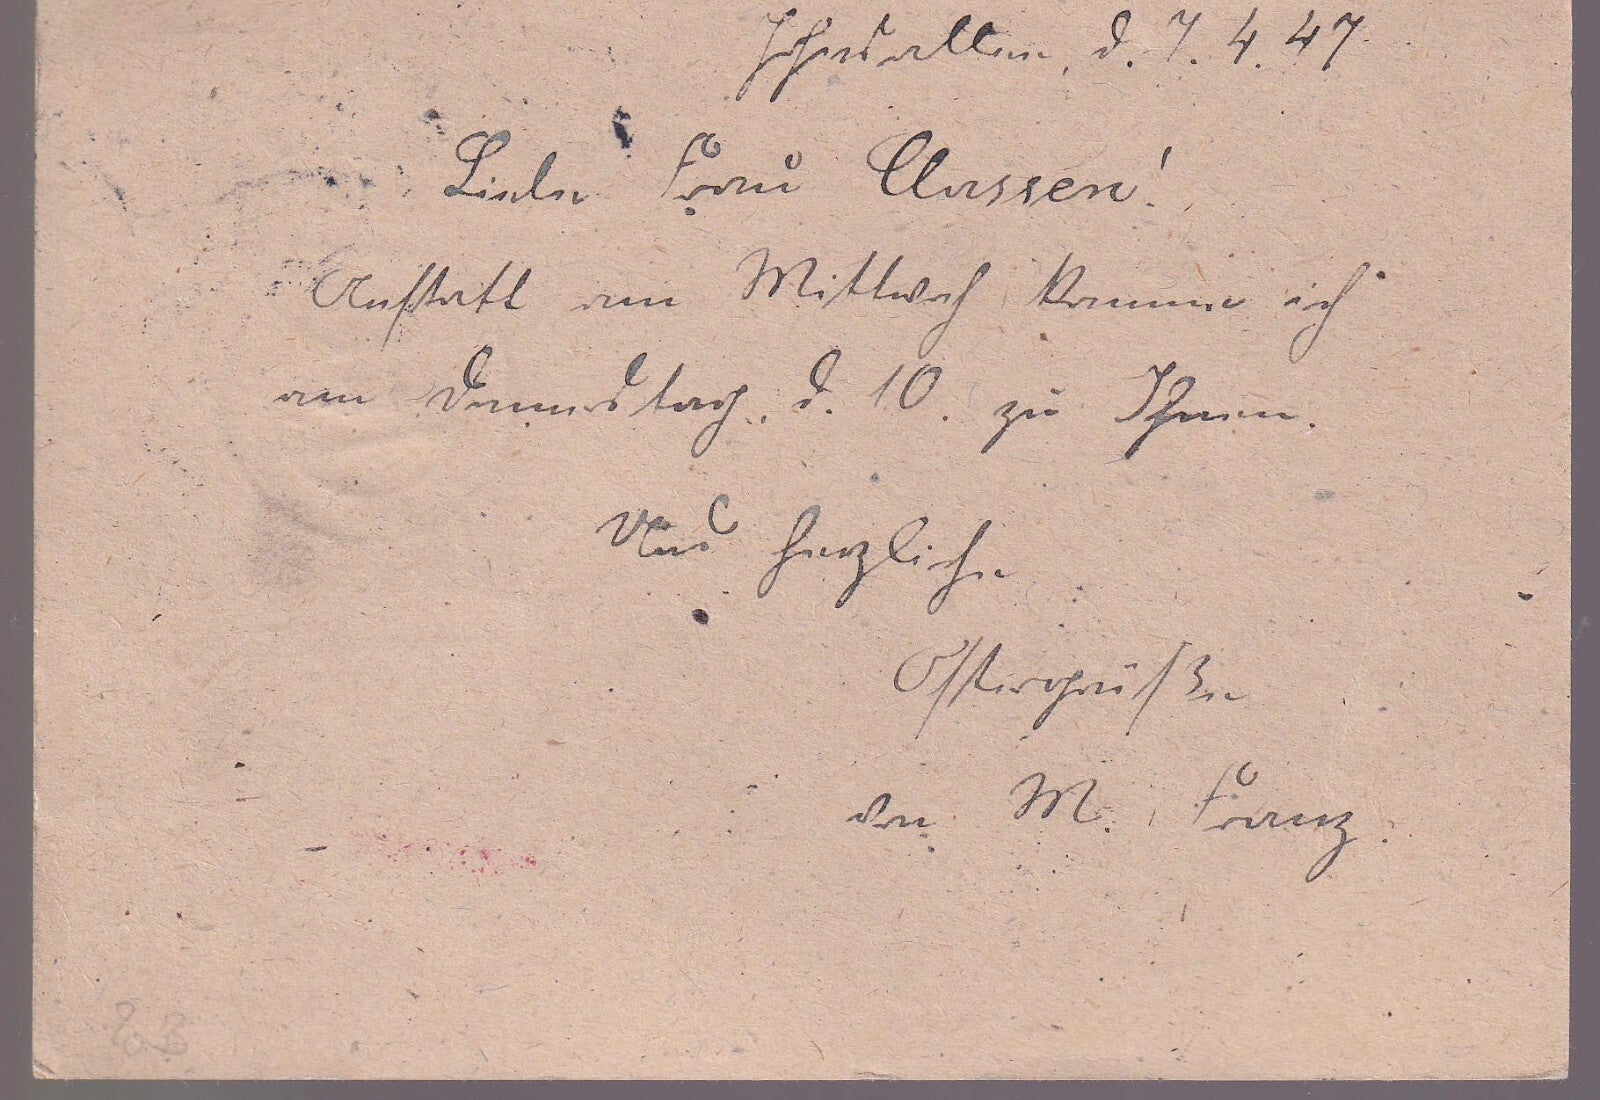 Ichenallen, d. 7. 4. 47.
Liebe Frau Classen!
Anstatt am Mittwoch komme ich
am Donnerstag, d. 10. zu Ihnen.
Und herzliche
Ostergrüße
von M. Franz.